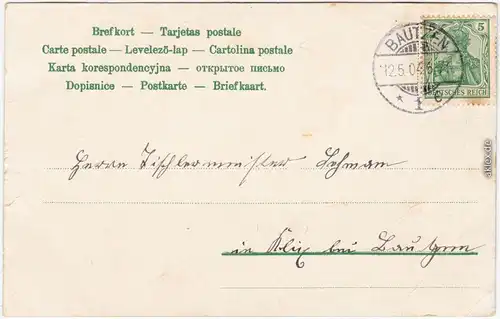 Brefkort — Tarjetas postale
Carte postale — Levelező-lap — Cartolina postale
Karta korespondencyjna — открытое письмо
Dopisnice — Postkarte — Briefkaart.
BAUTZEN
12.5.04
* 1 c
5
DEUTSCHES REICH
Herrn Tischlermeister Lehmann
in Klix bei Bautzen